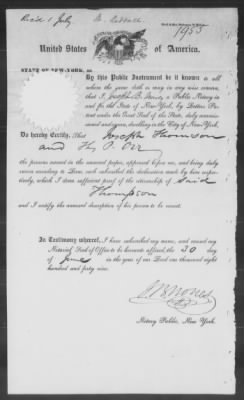 Recd 1 July
1953
United States of America.
STATE OF NEW-YORK, ss.
By this Public Instrument be it known to all
whom the same doth or may in any wise concern,
that I, Joseph B. Nones, a Public Notary in
and for the State of New-York, by Letters Pa-
tent under the Great Seal of the State, duly commis-
sioned and sworn, dwelling in the City of New-York,
Do hereby Certify, That Joseph Thomson
and H. O. Orr
the persons named in the annexed papers, appeared before me, and being duly
sworn according to Law, each subscribed the declaration made by him respec-
tively, which I deem sufficient proof of the citizenship of said
Thompson
and I certify the annexed description of his person to be correct.
In Testimony whereof, I have subscribed my name, and caused my
Notarial Seal of Office to be hereunto affixed, the 30 day
of June in the year of our Lord one thousand eight
hundred and forty nine.
J B Nones
Notary Public, New York.